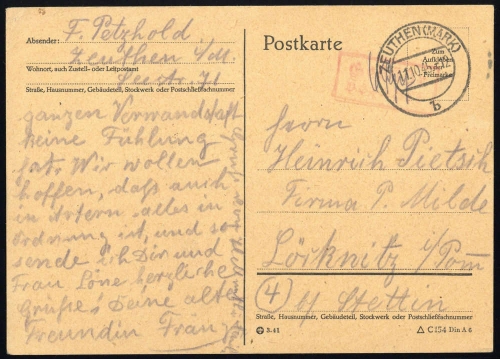 Absender: F. Petzhold
Zeuthen i/M.
Wohnort, auch Zustell- oder Leitpostamt
Seestr. 71
Straße, Hausnummer, Gebäudeteil, Stockwerk oder Postschließfachnummer
ganzen Verwandschaft
keine Fühlung
hat. Wir wollen
hoffen, daß auch
in Artern alles in
Ordnung ist, und so
sende ich Dir und
Frau Löne herzliche
Grüße! Deine alte
Freundin Franz
Postkarte
ZEUTHEN (MARK)
b
Zum
Aufkleben
der
Freimarke
Herrn
Heinrich Pietsch
Firma P. Milde
Löcknitz i/Pom
(4) bei Stettin
Straße, Hausnummer, Gebäudeteil, Stockwerk oder Postschließfachnummer
3.41
C 154 Din A 6